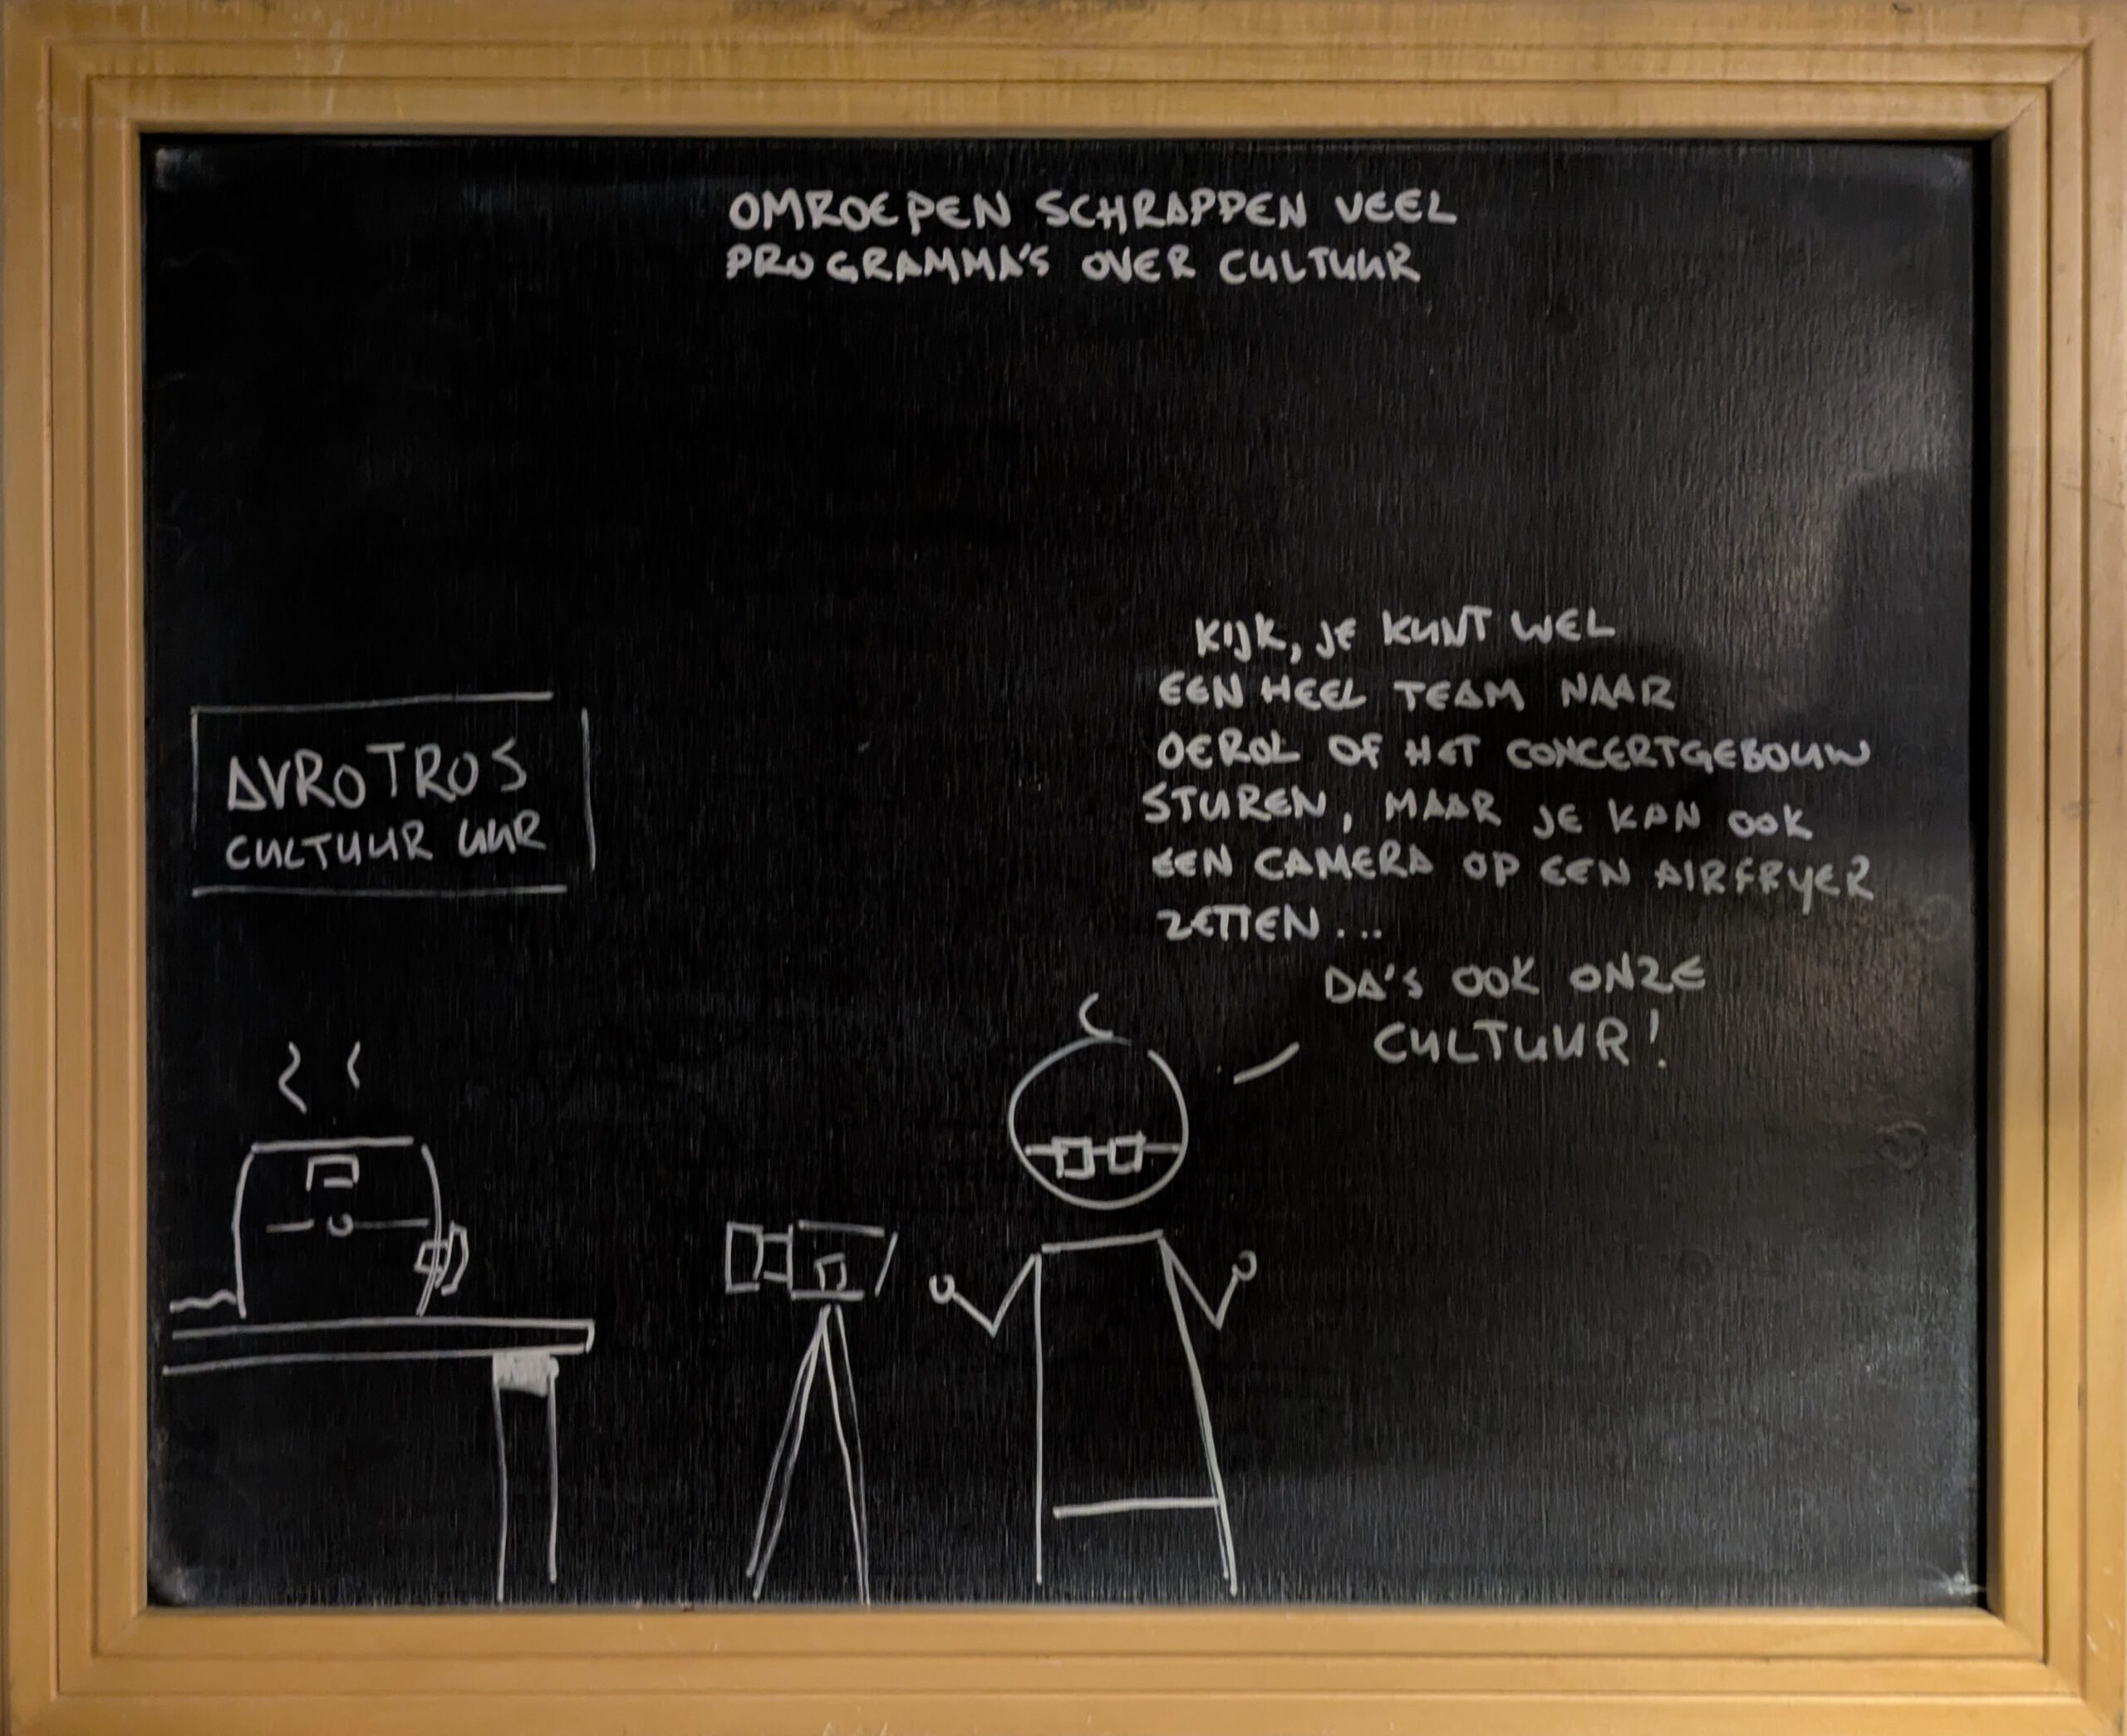 OMROEPEN SCHRAPPEN VEEL
PROGRAMMA'S OVER CULTUUR
KIJK, JE KUNT WEL
EEN HEEL TEAM NAAR
OEROL OF HET CONCERTGEBOUW
STUREN, MAAR JE KAN OOK
EEN CAMERA OP EEN AIRFRYER
ZETTEN...
DA'S OOK ONZE
CULTUUR!
AVROTROS
CULTUUR UUR